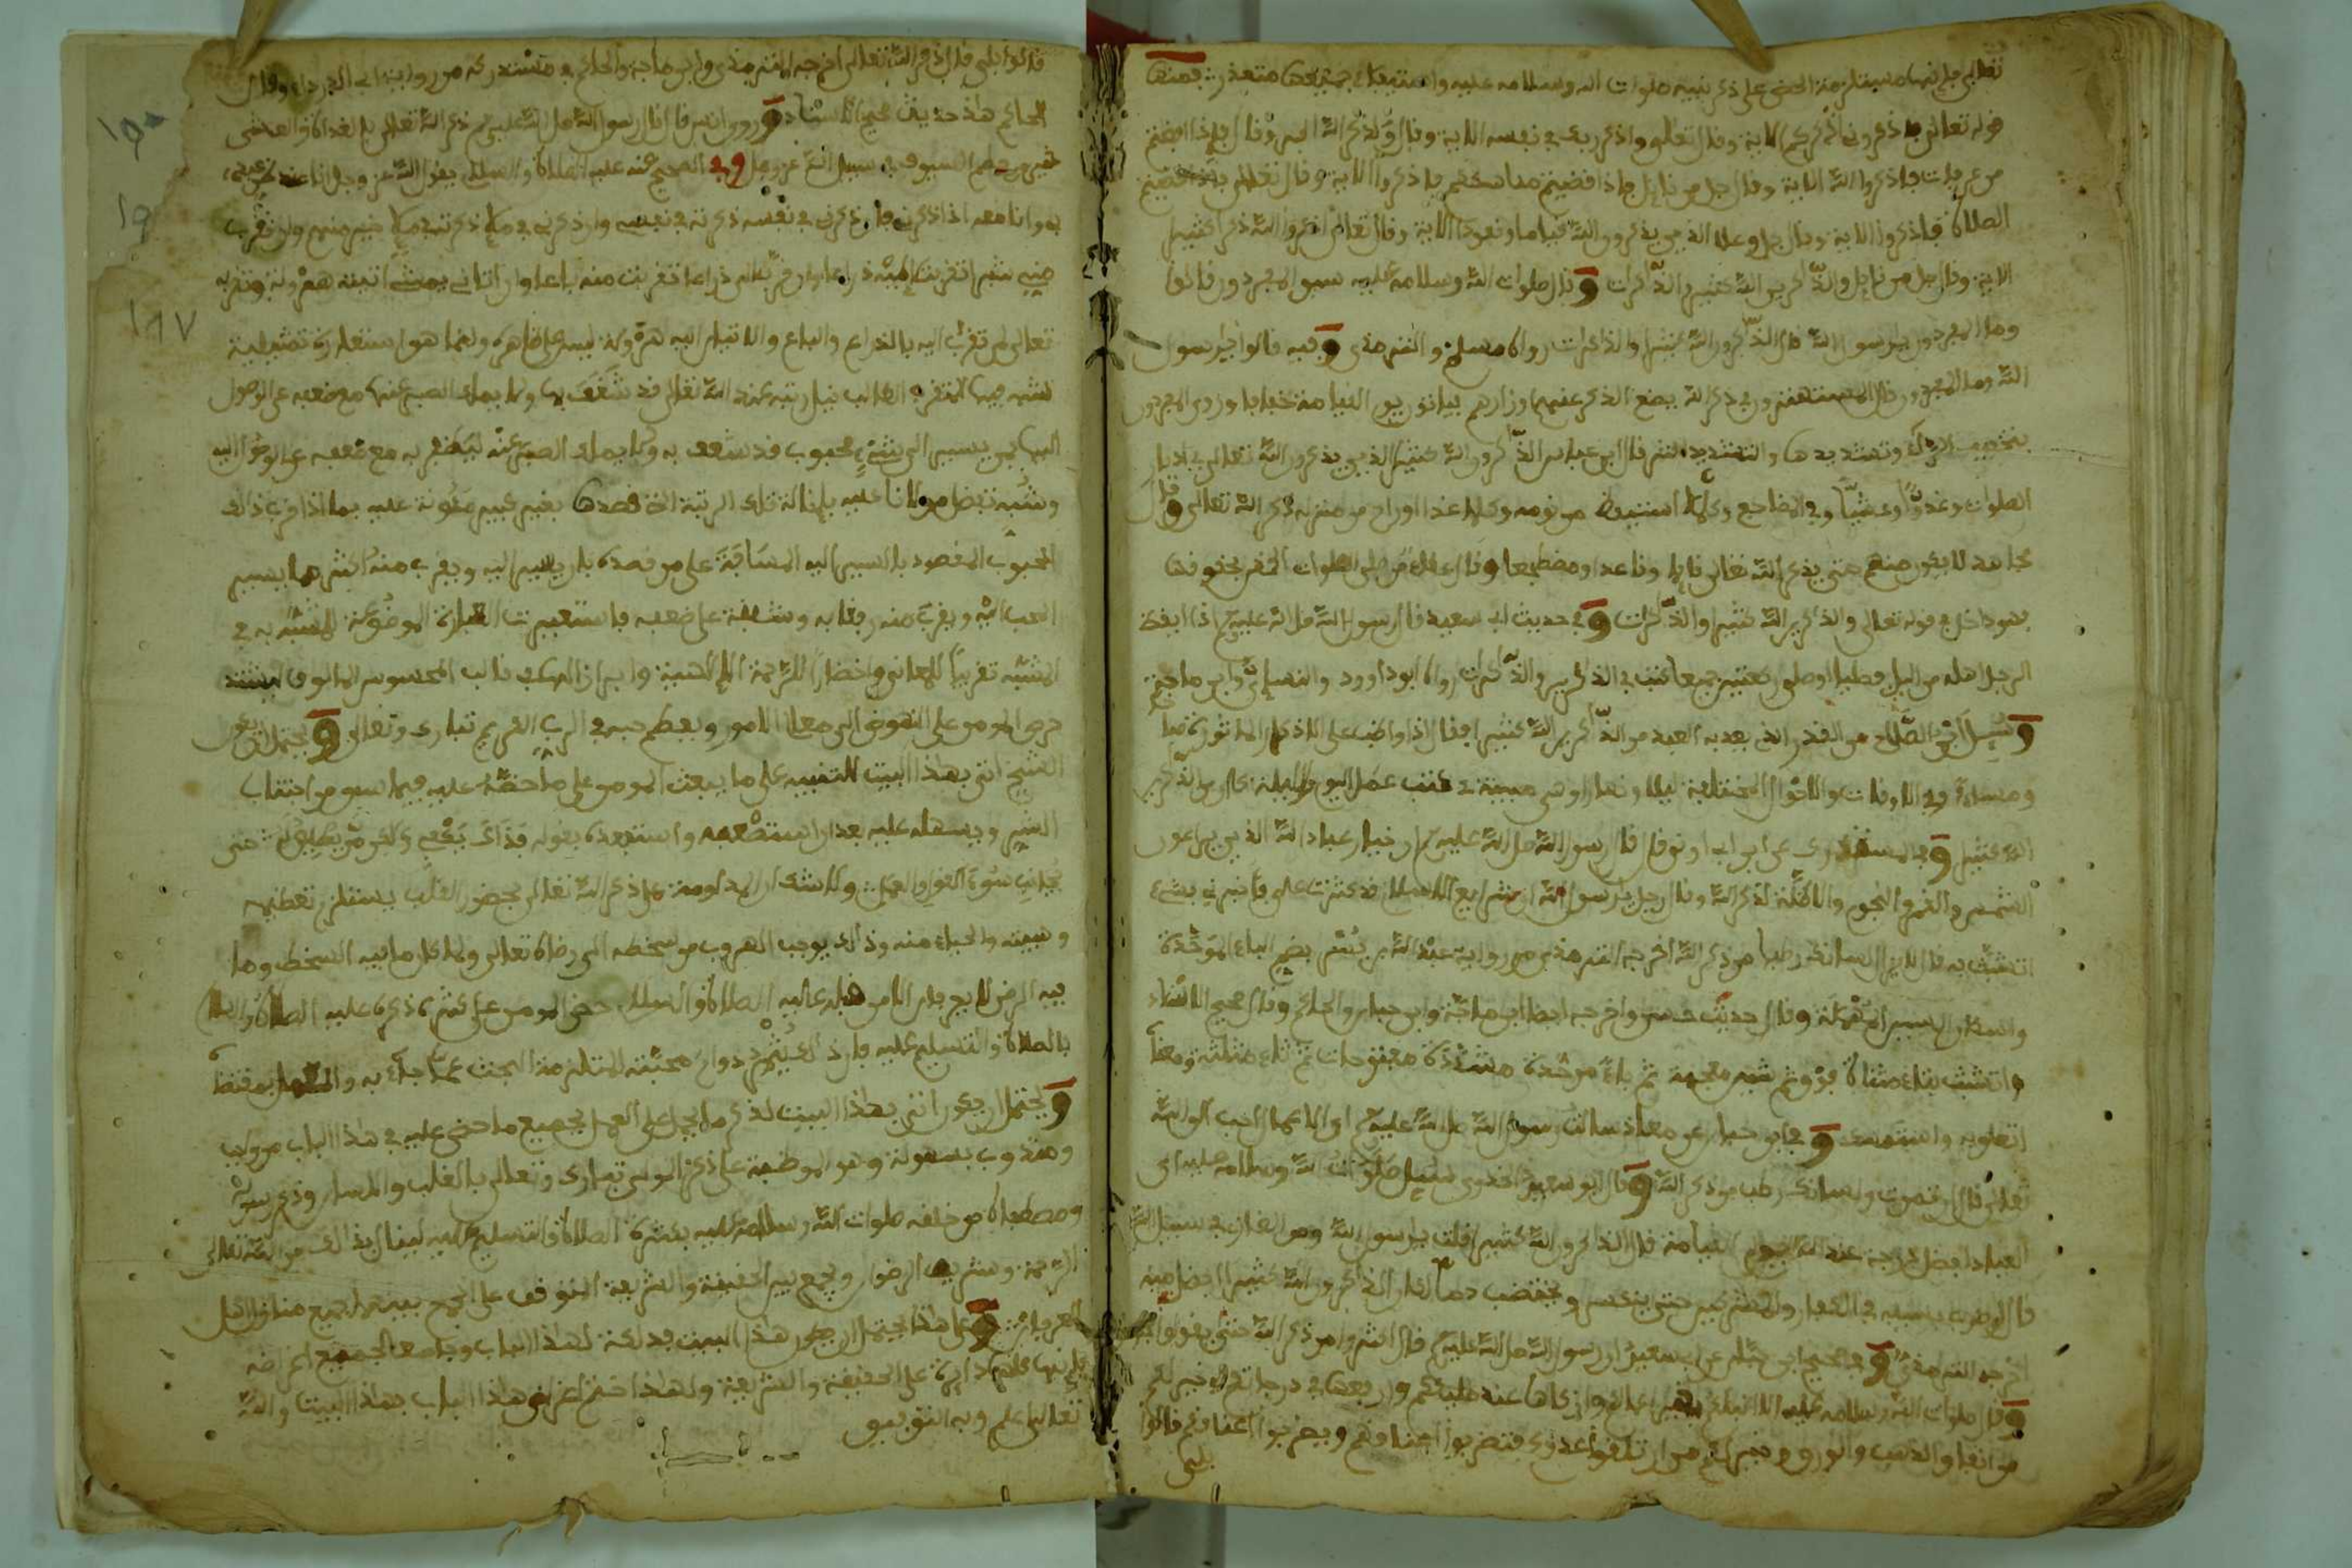 تعالى فإنها مستلزمة الحض على ذكر نبيه صلوات الله وسلامه عليه
قوله تعالى فاذكروني أذكركم الاية وقال تعالى واذكر ربك في نفسك الاية وقال ولذكر الله أكبر وقال فإذا أفضتم
من عرفات فاذكروا الله الاية وقال جل من قايل فإذا قضيتم مناسككم فاذكروا الله الاية وقال تعالى فإذا قضيتم
الصلاة فاذكروا الله الاية وقال جل وعلا الذين يذكرون الله قياما وقعودا الاية وقال تعالى اذكروا الله ذكرا كثيرا
الاية وقال جل من قايل والذاكرين الله كثيرا والذاكرات وقال صلوات الله وسلامه عليه سبق المفردون قالوا
وما المفردون يا رسول الله قال الذاكرون الله كثيرا والذاكرات رواه مسلم والترمذي وفيه قالوا يا رسول
الله وما المفردون قال المستهترون في ذكر الله يضع الذكر عنهم أوزارهم فيأتون يوم القيامة خفافا وروي المفردون
بتخفيف الراء وتشديدها والتشديد أشهر قال ابن عباس الذاكرون الله كثيرا الذين يذكرون الله تعالى في أدبار
الصلوات وغدوا وعشيا وفي المضاجع وكلما استيقظ من نومه وكلما غدا أو راح من منزله ذكر الله تعالى وقال
مجاهد لا يكون منهم حتى يذكر الله تعالى قايما وقاعدا ومضطجعا وقال عطاء من صلى الصلوات الخمس بحقوقها
فهو داخل في قوله تعالى والذاكرين الله كثيرا والذاكرات وفي حديث أبي سعيد قال رسول الله صلى الله عليه إذا أيقظ
الرجل أهله من الليل فصليا أو صلى ركعتين جميعا كتب في الذاكرين والذاكرات رواه أبو داوود والنسائي وابن ماجة
وسئل ابن الصلاح عن القدر الذي يعد به العبد من الذاكرين الله كثيرا فقال إذا واظب على الأذكار الماثورة صباحا
ومساء وفي الأوقات والأحوال المختلفة ليلا ونهارا وهي مبينة في كتب عمل اليوم والليلة كان من الذاكرين
الله كثيرا وفي المستدرك عن ابن أبي أوفى قال قال رسول الله صلى الله عليه إن خيار عباد الله الذين يراعون
الشمس والقمر والنجوم والأظلة لذكر الله وقال رجل يا رسول الله إن شرائع الإسلام قد كثرت علي فأخبرني بشيء
أتشبث به قال لا يزال لسانك رطبا من ذكر الله أخرجه الترمذي من رواية عبد الله بن بسر بضم الباء الموحدة
وإسكان السين المهملة وقال حديث حسن وأخرجه أيضا ابن ماجة وابن حبان والحاكم وقال صحيح الإسناد
وأتشبث بتاء مثناة فوق ثم شين معجمة ثم باء موحدة مشددة مفتوحات ثم ثاء مثلثة ومعناه
أتعلق به وأستمسك وفي ابن حبان عن معاذ سألت رسول الله صلى الله عليه أي الأعمال أحب إلى الله
تعالى قال أن تموت ولسانك رطب من ذكر الله وقال أبو سعيد الخدري سئل صلوات الله وسلامه عليه أي
العباد أفضل درجة عند الله يوم القيامة قال الذاكرون الله كثيرا قلت يا رسول الله ومن الغازي في سبيل الله
قال لو ضرب بسيفه في الكفار والمشركين حتى ينكسر ويختضب دما لكان الذاكرون الله كثيرا أفضل منه
أخرجه الترمذي وفي صحيح ابن حبان عن أبي سعيد أن رسول الله صلى الله عليه قال أكثروا من ذكر الله حتى يقولوا
وقال صلوات الله وسلامه عليه ألا أنبئكم بخير أعمالكم وأزكاها عند مليككم وأرفعها في درجاتكم وخير لكم
من إنفاق الذهب والورق وخير لكم من أن تلقوا عدوكم فتضربوا أعناقهم ويضربوا أعناقكم قالوا
بلى
قالوا بلى قال ذكر الله تعالى أخرجه الترمذي وابن ماجة والحاكم في مستدركه من رواية أبي الدرداء وقال
الحاكم هذا حديث صحيح الإسناد وروى أنس قال قال رسول الله صلى الله عليه ذكر الله تعالى بالغداة والعشي
خير من حطم السيوف في سبيل الله عز وجل وفي الصحيح عنه عليه الصلاة والسلام يقول الله عز وجل أنا عند ظن عبدي
بي وأنا معه إذا ذكرني فإن ذكرني في نفسه ذكرته في نفسي وإن ذكرني في ملإ ذكرته في ملإ خير منهم وإن تقرب
مني شبرا تقربت إليه ذراعا وإن تقرب إلي ذراعا تقربت منه باعا وإن أتاني يمشي أتيته هرولة وتقربه
تعالى لمن تقرب إليه بالذراع والباع والإتيان إليه هرولة ليس على ظاهره وإنما هو استعارة تمثيلية
شبه فيها المتقرب الطالب نيل رتبة عند الله تعالى قد شغف بها ولا يملك الصبر عنها مع ضعفه عن الوصول
إليها بمن يسير إلى شيء محبوب قد شغف به ولا يملك الصبر عنه ليظفر به مع ضعفه عن الوصول إليه
وشبه تفضل مولانا عليه بإنالة تلك الرتبة التي قصدها بغير كبير مئونة عليه بما إذا قرب ذلك
المحبوب المقصود بالسير إليه المسافة على من قصده بأن يسير إليه ويقرب منه أكثر مما يسير
المحب إليه ويقرب منه رفقا به وشفقة على ضعفه فاستعيرت العبارة الموضوعة للمشبه به في
المشبه تقريبا للمعاني وإحضارا للرحمة الإلهية وإبرازا لها في قالب المحسوس المالوف ليشتد
حرص المومن على النهوض إلى معالي الأمور ويعظم حبه في الرب الكريم تبارك وتعالى ويحتمل أن يكون
الشيخ أتى بهذا البيت للتنبيه على ما يبعث المومن على ما حضه عليه فيما سبق من اجتناب
الشر ويسهله عليه بعد أن استصعبه واستبعده بقوله فذاك يكفي ولكن من يطيق حتى
يجانب سوء القول والعمل ولا شك أن المداومة على ذكر الله تعالى بحضور القلب يستلزم تعظيمه
وهيبته والحياء منه وذلك يوجب الهروب من سخطه إلى رضاه تعالى ولما كان ما فيه السخط وما
فيه الرضى لا يعرفان إلا من قبله عليه الصلاة والسلام حض المومن على كثرة ذكره عليه الصلاة والسلام
بالصلاة والتسليم عليه فإن ذلك يثمر دوام محبته المستلزمة البحث عما جاء به والعمل بمقتضاه
ويحتمل أن يكون أتى بهذا البيت لذكر ما يحمل على العمل بجميع ما حض عليه في هذا الباب من واجب
ومندوب بسهولة وهو المواظبة على ذكر المولى تبارك وتعالى بالقلب واللسان وذكر نبيه
ومصطفاه من خلقه صلوات الله وسلامه عليه بكثرة الصلاة والتسليم عليه لينال بذلك من الله تعالى
الرحمة وشريف الرضوان ويجمع بين الحقيقة والشريعة المتوقف على الجمع بينهما جميع منازل أهل
العرفان وعلى هذا يحتمل أن يكون هذا البيت فذلكة لهذا الباب وجامعا لجميع أغراضه
فإنها كلها دايرة على الحقيقة والشريعة ولهذا ختم أغراض هذا الباب بهذا البيت والله
تعالى أعلم وبه التوفيق
١٩٧